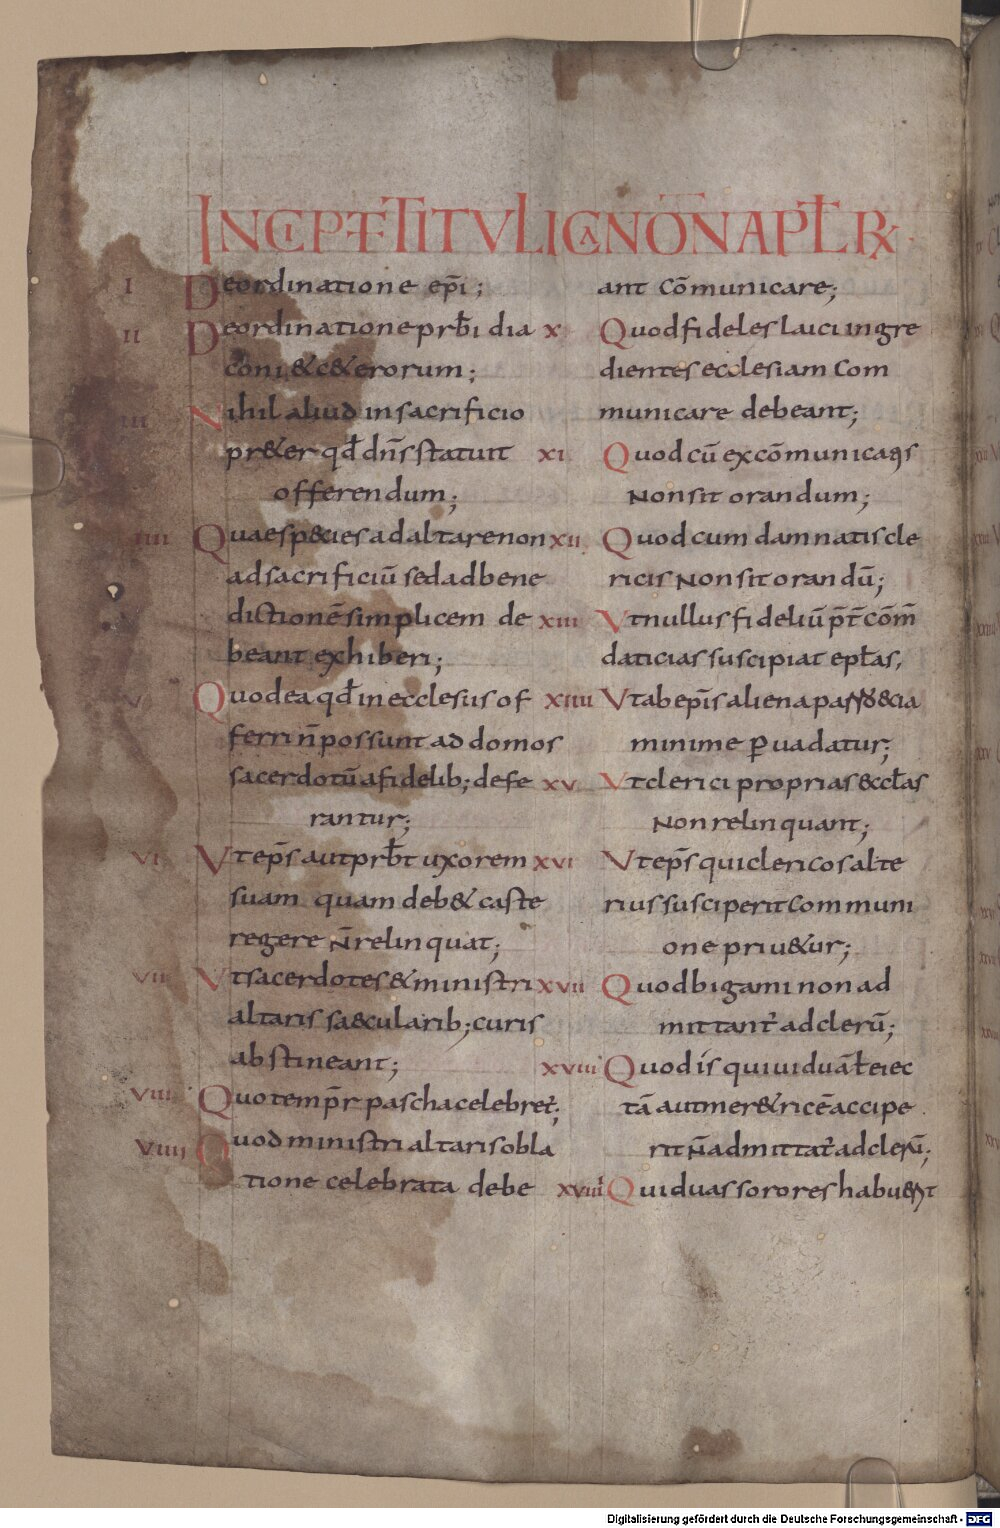 INCIPT TITVLI CANŌN APŁRꝜ
I Deordinatione ep̄i;
II Deordinatione prb̄i dia
coni & c&erorum;
III Nihil aliud in sacrificio
pr&er qđ dn̄s statuit
offerendum;
IIII Quae sp&ies ad altare non
ad sacrificiū sed ad bene
dictionē simplicem de
beant exhiberi;
V Quod ea qđ in ecclesiis of
ferri n̄ possunt ad domos
sacerdotū a fidelib; defe
rantur;
VI Vt ep̄s aut prb̄t uxorem
suam quam deb& caste
regere n̄ relinquat;
VII Vt sacerdotes & ministri
altaris saecularib; curis
abstineant;
VIII Quo temp̄r pascha celebret̄;
VIIII Quod ministri altaris obla
tione celebrata debe
ant cōmunicare;
X Quod fideles laici ingre
dientes ecclesiam com
municare debeant;
XI Quod cū excōmunicatis
non sit orandum;
XII Quod cum damnatis cle
ricis non sit orandū;
XIII Vt nullus fideliū p̄t̄ cōm̄
daticias suscipiat epłas,
XIIII Vt ab ep̄is aliena
minime ꝑuadatur;
XV Vt clerici proprias &ccłas
non relinquant;
XVI Vt ep̄s qui clericos alte
rius susciperit communi
one priu&ur;
XVII Quod bigami non ad
mittant̄ ad clerū;
XVIII Quod is qui uiduā ł eiec
tā aut mer&ricē accipe
rit n̄ admittat̄ ad clerū;
XVIIII Qui duas sorores habu&